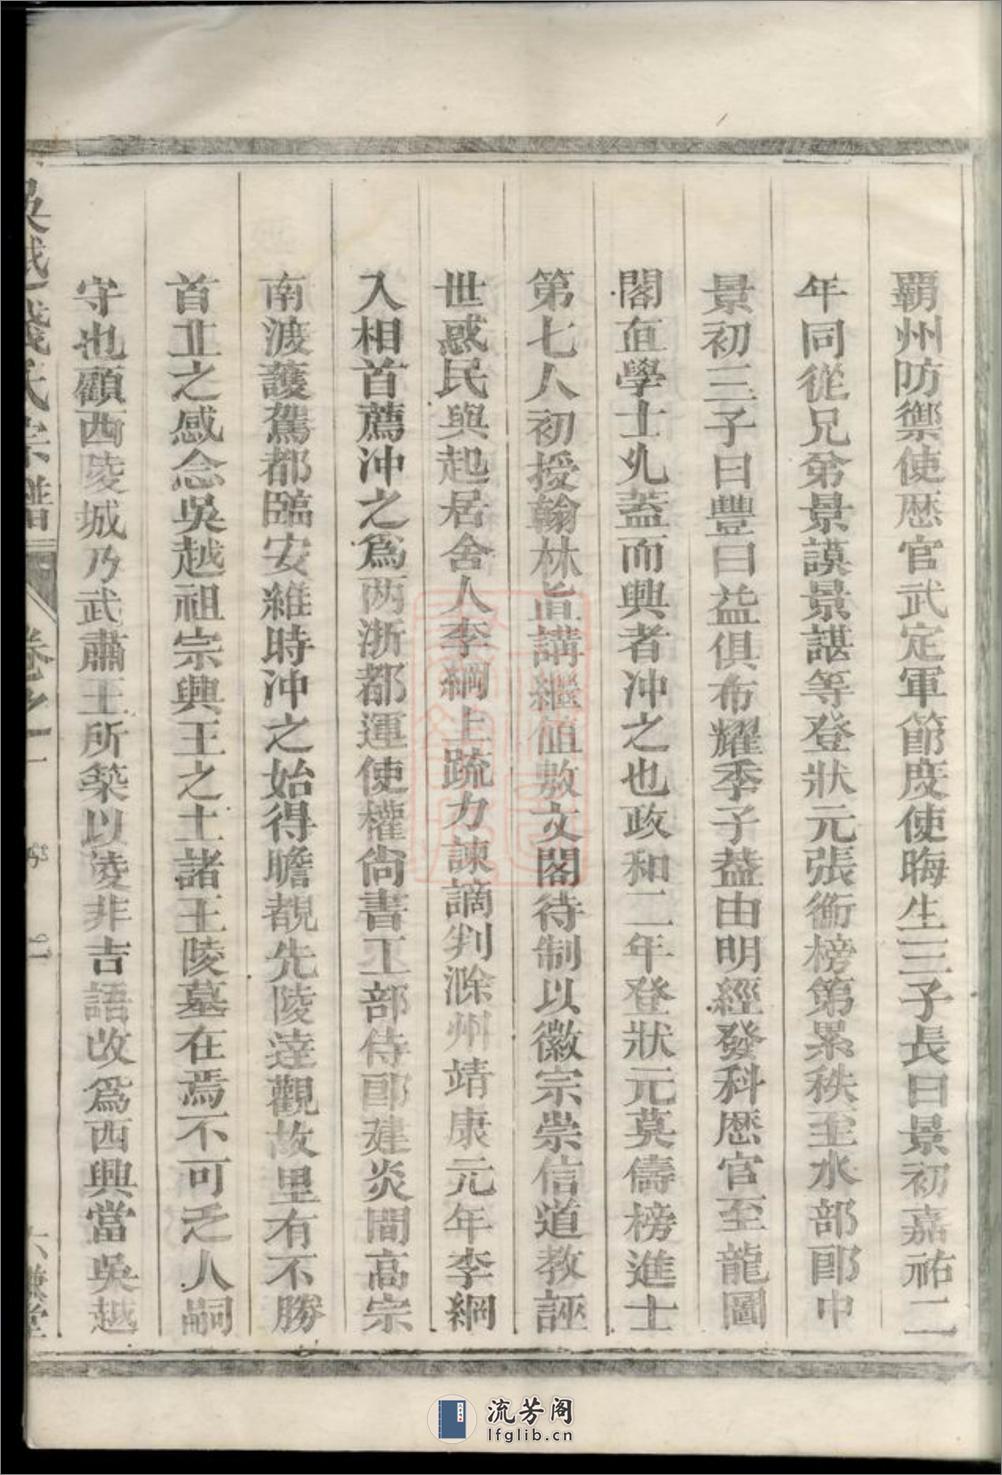 覇州防禦使歴官武定軍節度使晦生三子長曰景初嘉祐二
年同從兄弟景謨景諶等登狀元張衜榜第累秩至水部郎中
景初三子曰豐曰益俱布耀季子益由明經發科歴官至龍圖
閣直學士凣蓋而興者冲之也政和二年登狀元莫儔榜進士
第七人初授翰林旨講繼值敷文閣待制以徽宗崇信道教誣
世惑民與起居舍人李綱上疏力諫謫判滁州靖康元年李綱
入相首薦冲之爲两浙都運使權尙書工部侍郎建炎間高宗
南渡護駕都臨安維時冲之始得瞻覩先陵逹觀故里有不勝
首丘之感念吳越祖宗興王之土諸王陵墓在焉不可乏人嗣
守也顧西陵城乃武肅王所築以陵非吉語改爲西興當吳越
吳越錢氏宗譜 卷之一 六謙堂
流芳阁
lfglib.cn